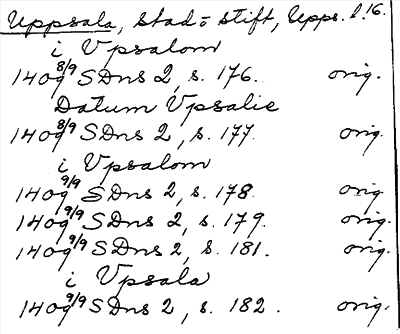 Uppsala, Stad = Stift, Upps. l. 16.
i Vpsalom
1409 8/9 SDns 2, s. 176. orig.
Datum Vpsalie
1409 8/9 SDns 2, s. 177. orig.
i Vpsalom
1409 9/9 SDns 2, s. 178. orig.
1409 9/9 SDns 2, s. 179. orig.
1409 9/9 SDns 2, s. 181. orig.
i Vpsala
1409 9/9 SDns 2, s. 182. orig.